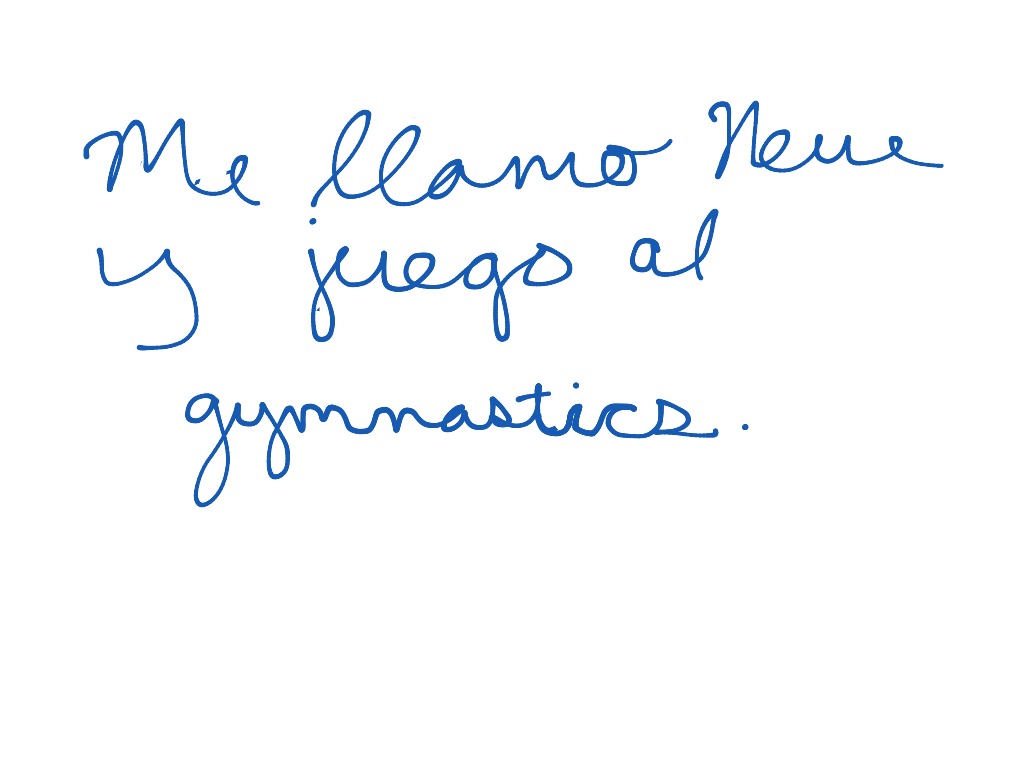 Me llamo Neue
y juego al
gymnastics.